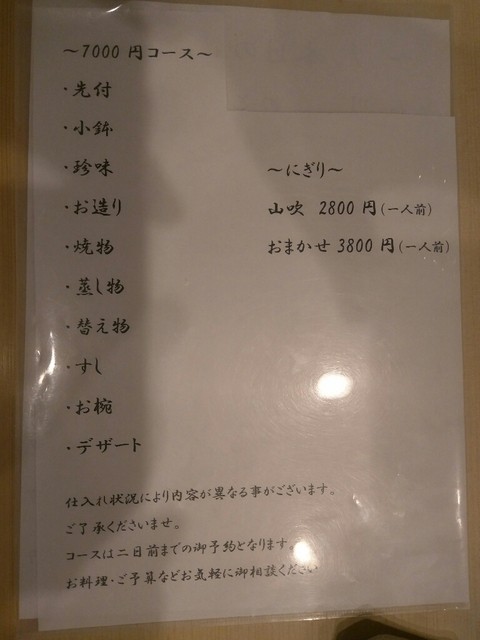 ～7000 円コース～
・先付
・小鉢
・珍味
・お造り
・焼物
・蒸し物
・替え物
・すし
・お椀
・デザート
～にぎり～
山吹 2800 円（一人前）
おまかせ 3800 円（一人前）
仕入れ状況により内容が異なる事がございます。
ご了承くださいませ。
コースは二日前までの御予約となります。
お料理・ご予算などお気軽に御相談ください